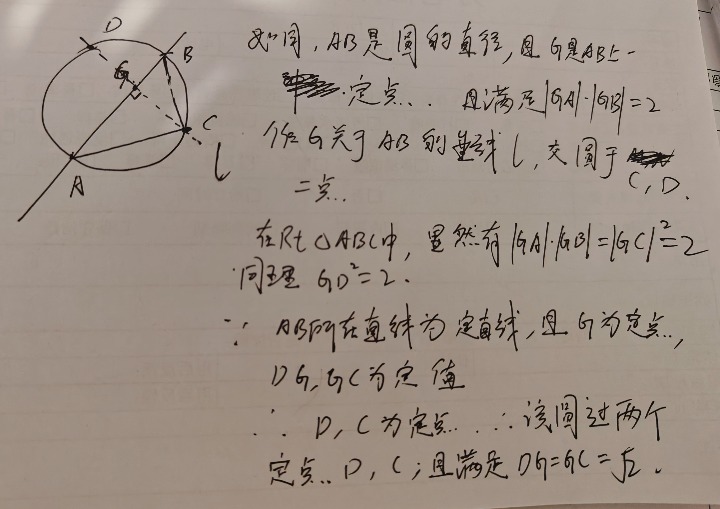 D
B
G
C
A
l
如图，AB是圆的直径，且G是AB上一
定点.. 且满足|GA|·|GB|=2
作G关于AB的垂线l，交圆于
C，D.
二点..
在Rt△ABC中，显然有|GA|·|GB|=|GC|²=2
同理 GD²=2.
∵ AB所在直线为定直线，且G为定点..，
DG,GC为定值
∴ D，C为定点.. ∴该圆过两个
定点.. D，C；且满足DG=GC=√2.